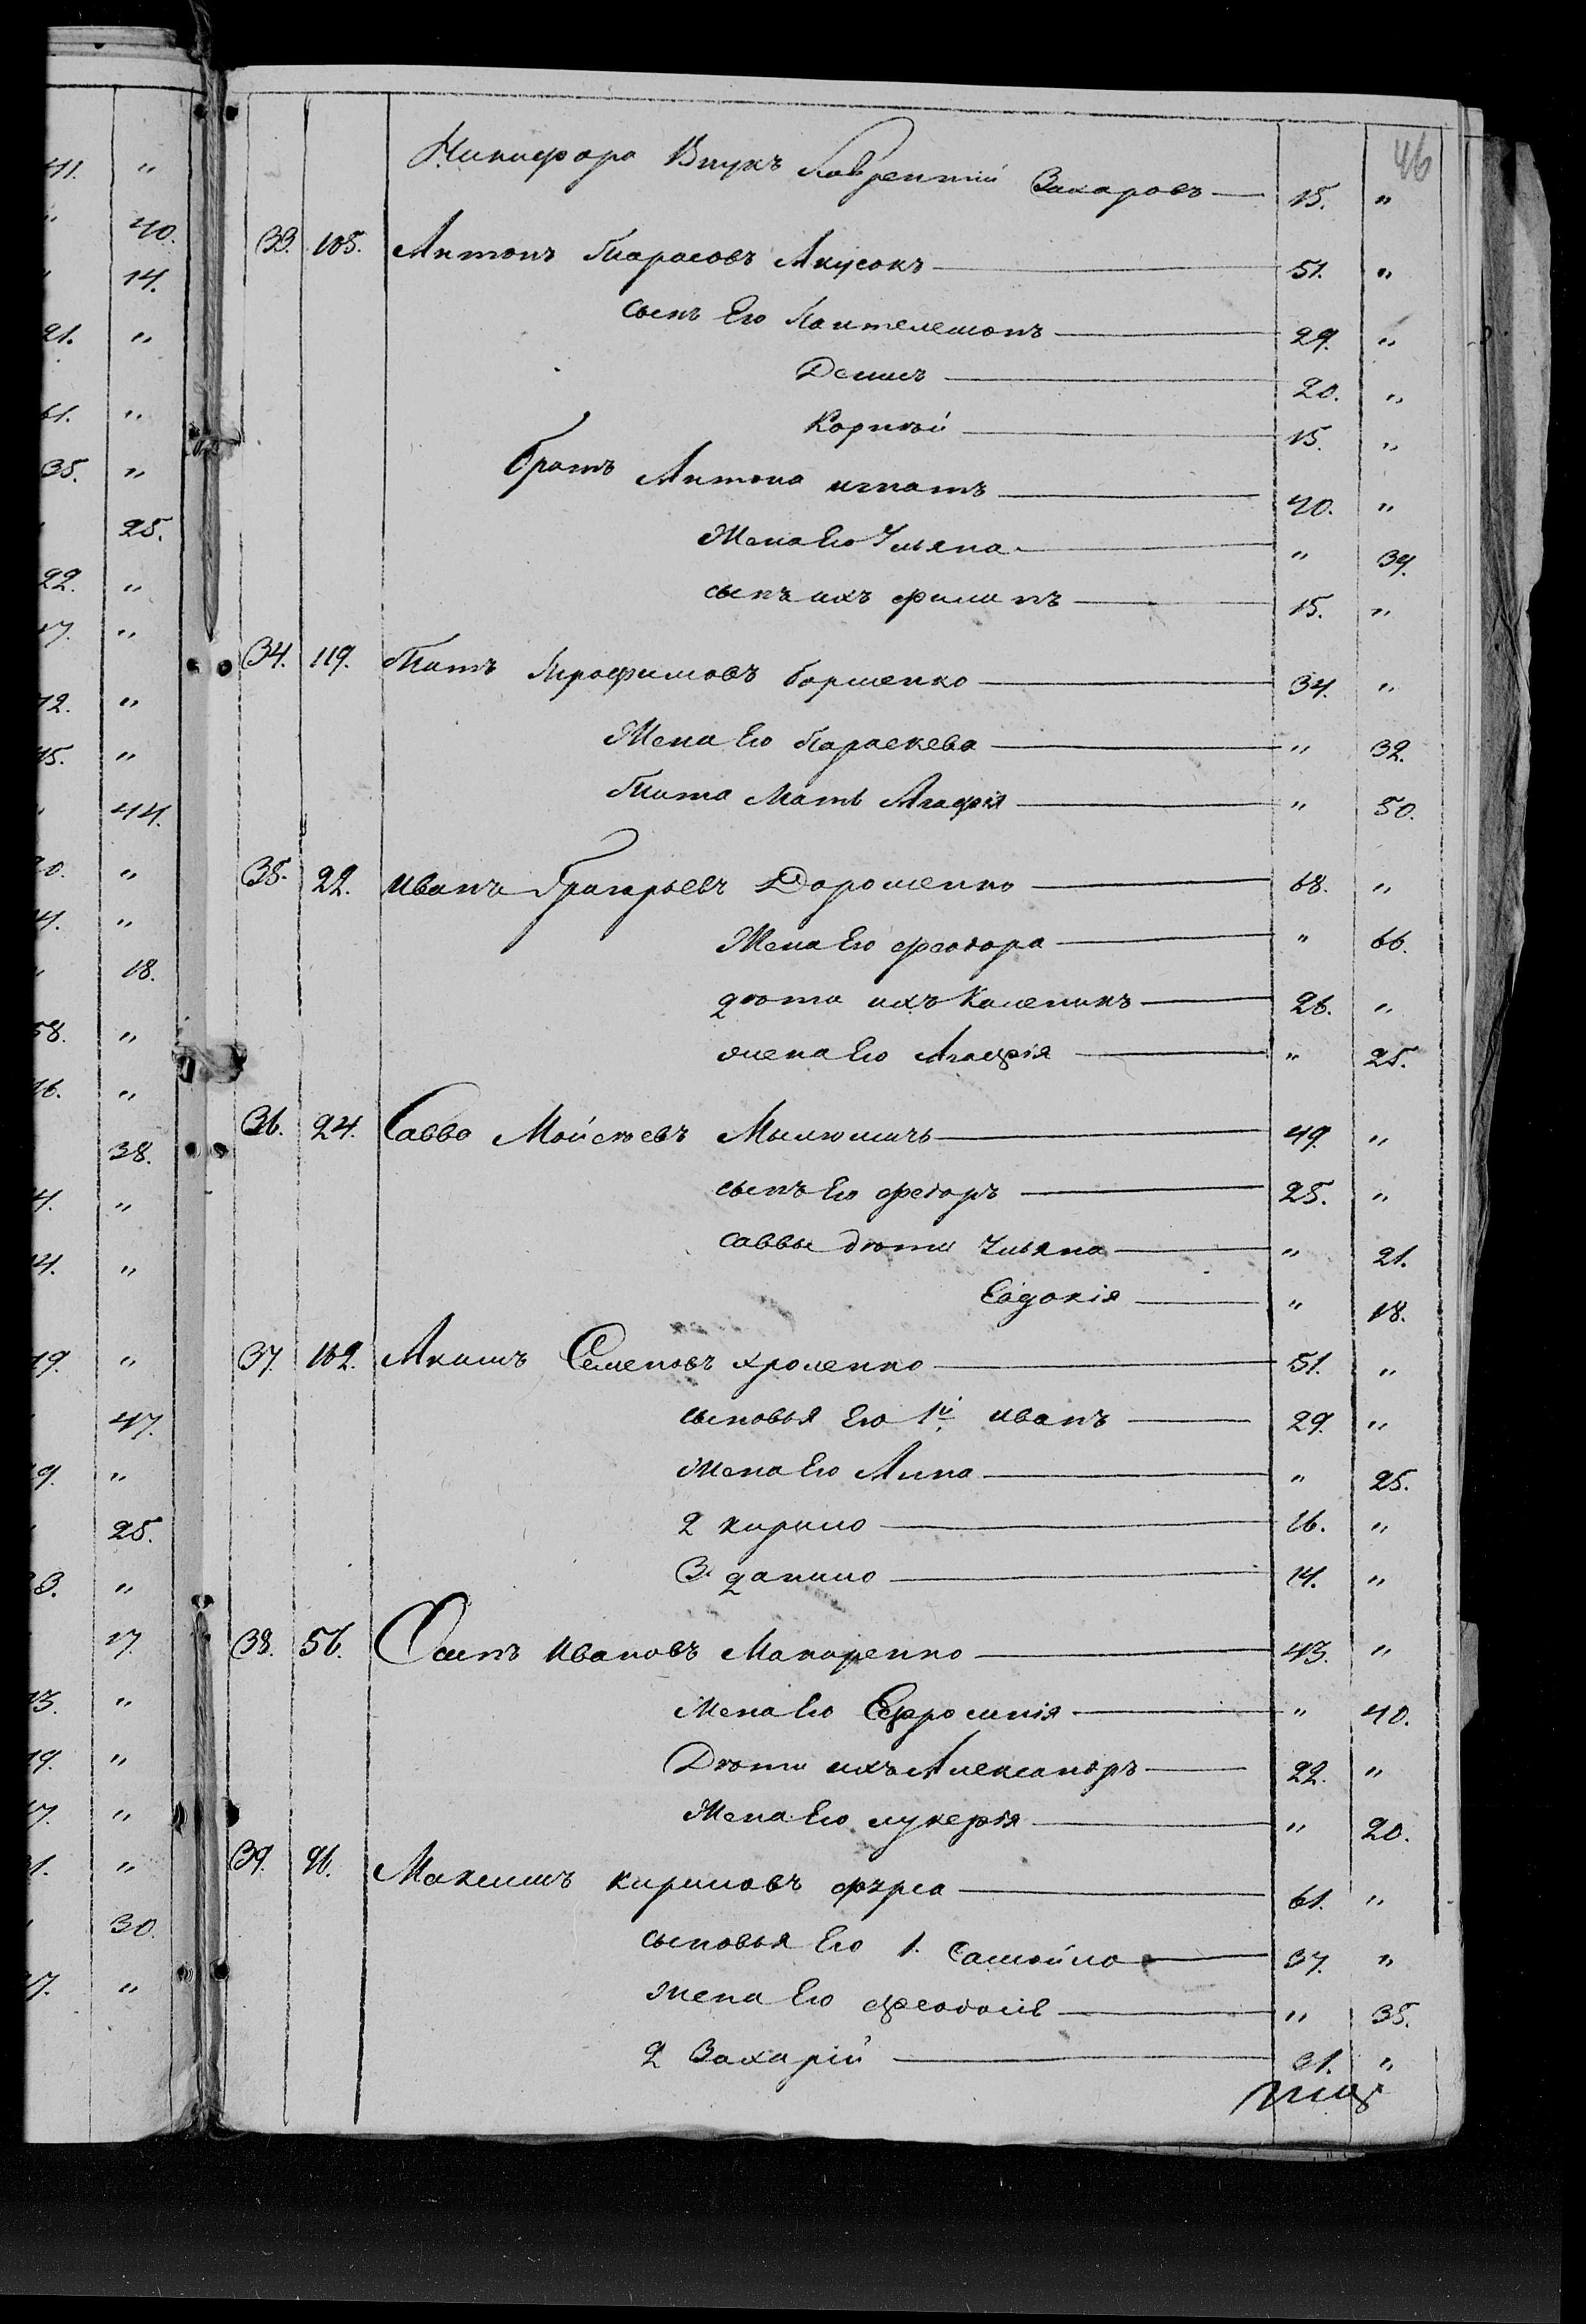 46
Никифора Внукъ Лаврентій Захаровъ — 15. "
33. 105. Антонъ Тарасовъ — 51. "
сынъ Его Пантелемонъ — 29. "
Демидъ — 20. "
Корнѣй — 15. "
братъ Антона игнатъ — 40. "
Жена Его Ульяна — " 39.
сынъ ихъ филипъ — 15. "
34. 119. Титъ Трофимовъ — 34. "
Жена Его Параскева — " 32.
Тита Мать Агафія — " 50.
35. 22. иванъ Григорьевъ Дорошенко — 68. "
Жена Его феодора — " 66.
дѣти ихъ Каленикъ — 26. "
жена Его Агафія — " 25.
36. 24. Савва Мойсѣевъ — 49. "
сынъ Его федоръ — 25. "
саввы дѣти Ульяна — " 21.
Евдокія — " 18.
37. 102. Акимъ Семеновъ хроленко — 51. "
сыновья Его 1й иванъ — 29. "
Жена Его Анна — " 25.
2 кирило — 16. "
3. данило — 14. "
38. 56. Осипъ ивановъ Макаренко — 43. "
Жена Его Ефросинія — " 40.
Дѣти ихъ Александръ — 22. "
Жена Его лукерія — " 20.
39. 96. Максимъ кириловъ — 61. "
сыновья Его 1. Самойло — 37. "
жена Его феодосія — " 35.
2 Захарій — 31. "